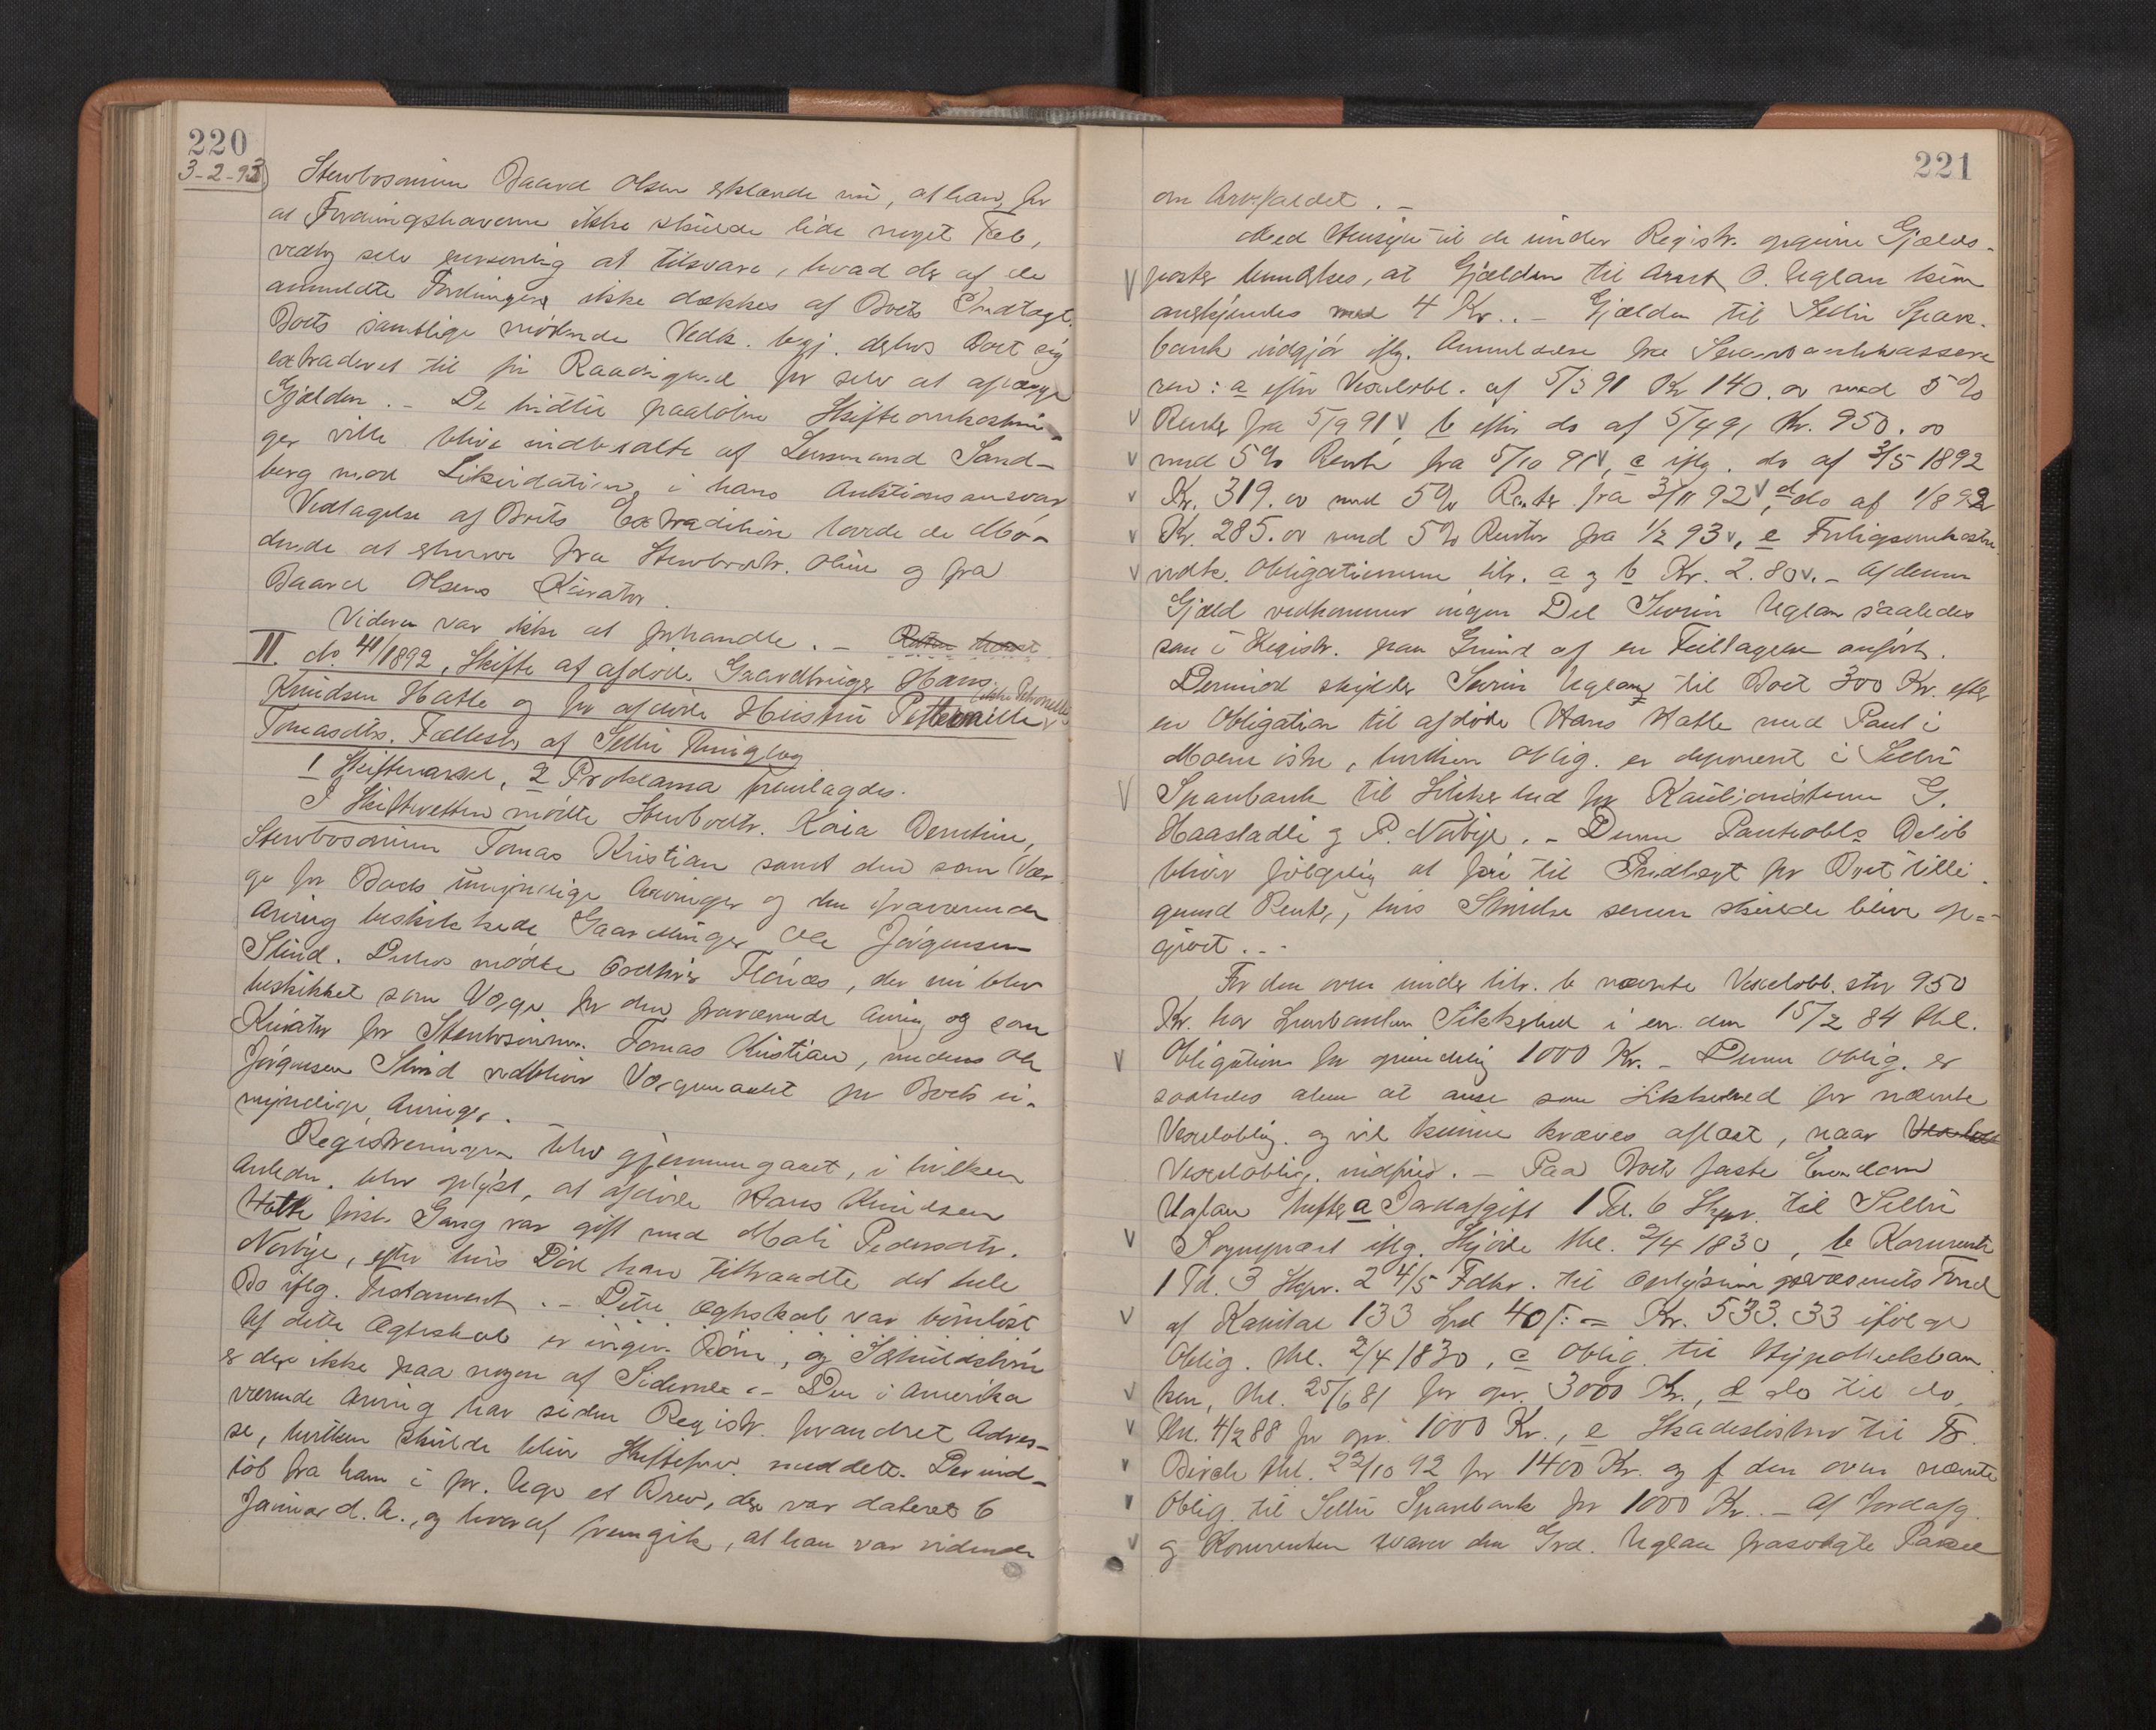 220
3-2-93
Stervbosønnen Baard Olsen erklærede nu, at han, for
at Fordringshaverne ikke skulde lide noget Tab,
vedtog selv personlig at tilsvare, hvad der af de
anmeldte Fordringer ikke dækkes af Boets Indtægt.
Boets samtlige mødende Vedk. begj. derhos Boet sig
extraderet til fri Raadighed for selv at afgjøre
Gjælden. – De hidtil paaløbne Skifteomkostnin-
ger ville blive indbetalte af Lensmand Sand-
berg mod Likvidation i hans Auktionsansvar
Vedtagelse af Boets Extradition lovede de Mø-
dende at erhverve fra Stervbodtr. Oline og fra
Baard Olsens Kurator.
Videre var ikke at forhandle. –
II. do. 41/1892, Skifte af afdøde Gaardbruger Hans
Knudsen Hatle og før afdøde Hustru Petternille
Tomasdtrs. Fællesbo af Selbu Thinglag
1 Skiftevarsel, 2 Proklama fremlagdes.
I Skifteretten mødte Stervbodtr. Kaia Berntine,
Stervbosønnen Tomas Kristian samt den som Vær
ge for Boets umyndige Arvinger og den fraværende
Arving beskikkede Gaardbruger Ole Jørgensen
Slind. Derhos mødte Ordfører Flønes, der nu blev
beskikket som Værge for den fraværende Arving og som
Kurator for Stervbosønnen Tomas Kristian, medens Ole
Jørgensen Slind vedbliver Værgemaalet for Boets u-
myndige Arvinger.
Registreringen blev gjennemgaaet, i hvilken
Anledn. blev oplyst, at afdøde Hans Knudsen
Hatle første Gang var gift med Mali Pedersdtr.
Norbye, efter hvis Død han tiltraadte det hele
Bo iflg. Testament. – Dette Ægteskab var børnløst
Af dette Ægteskab er ingen Børn, og Særkuldsbørn
er der ikke paa nogen af Siderne. – Den i Amerika
værende Arving har siden Registr. forandret Adres-
se, hvilken skulde blive Skifteforv. meddelt. Der ind-
løb fra ham i for. Uge et Brev, der var dateret 6
Januar d. A., og hvoraf fremgik, at han var vidende
221
om Arvefaldet. –
Med Hensyn til de under Registr. opgivne Gjælds-
poster bemærkes, at Gjælden til Arnt O. Uglan kun
anerkjendes med 4 Kr.. – Gjælden til Selbu Spare-
bank udgjør iflg. Anmeldelse fra Sparebankkassere
ren: a efter Vexelobl. af 5/3 91 Kr 140.00 med 5 %
Renter fra 5/9 91, b efter do af 5/4 91 Kr. 950.00
med 5 % Rente fra 5/10 91, c iflg. do af 3/5 1892
Kr. 319.00 med 5 % Renter fra 3/11 92, d do af 1/8 92
Kr. 285.00 med 5 % Renter fra 1/2 93, e Forligsomkostn
vedk. Obligationerne litr. a og b Kr. 2.80. – Af denne
Gjæld vedkommer ingen Del Sevrin Uglan saaledes
som i Registr. paa Grund af en Feiltagelse anført.
Derimod skylder Sevrin Uglan til Boet 300 Kr. efter
en Obligation til afdøde Hans Hatle med Pant i
Moen østre, hvilken Oblig. er deponeret i Selbu
Sparebank til Sikkerhed for Kautionisterne G.
Haastadli og P. Norbye. – Denne Pantobls Beløb
bliver følgelig at føre til Indtægt for Boet tilli-
gemed Renter, hvis Størrelse senere skulde blive op-
gjort. –
For den oven under litr. b nævnte Vexelobl. stor 950
Kr. har Sparebanken Sikkerhed i en den 15/2 84 thl.
Obligation for oprindelig 1000 Kr. – Denne Oblig. er
saaledes alene at anse som Sikkerhed for nævnte
Vexeloblig. og vil kunne kræves aflæst, naar
Vexeloblig. indfries. – Paa Boets faste Eiendom
Uglan hefter a Jordafgift 1 Td. 6 Skpr. til Selbu
Sognepræst iflg. Skjøde thl. 2/4 1830, b Kornrente
1 Td. 3 Skpr. 2 4/5 Fdkr. til Oplysningsvæsenets Fond
af Kapital 133 Spd 40 ſ: = Kr. 533.33 ifølge
Oblig. thl. 2/4 1830, c Oblig. til Hypothekban
ken, thl. 25/6 81 for opr. 3000 Kr., d do til do,
thl. 4/2 88 for opr. 1000 Kr., e Skadesløsbrev til Fr.
Birch thl. 22/10 92 for 1400 Kr. og f den oven nævnte
Oblig. til Selbu Sparebank for 1000 Kr.. – Af Jordafg.
og Kornrenten svarer den Grd. Uglan frasolgte Parcel